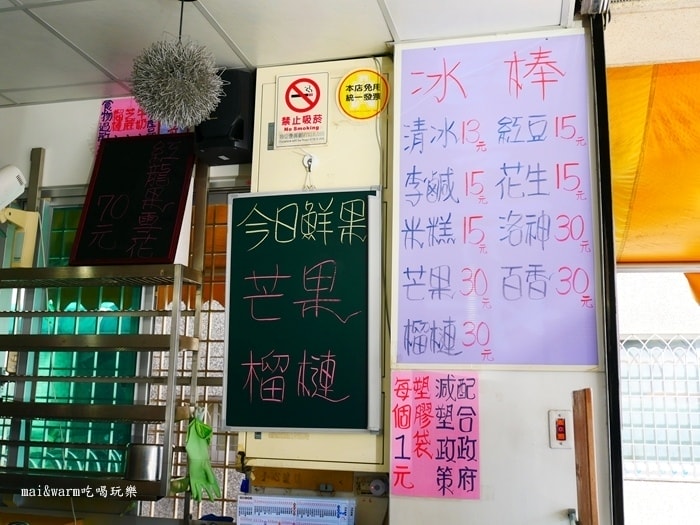 紅龍果雪花
70元
禁止吸菸
No Smoking
本店免用
統一發票
今日鮮果
芒果
榴槤
冰棒
清冰13元
紅豆15元
李鹹15元
花生15元
米糕15元
洛神30元
芒果30元
百香30元
榴槤30元
配合政府
減塑政策
塑膠袋
每個1元
mai&warm吃喝玩樂